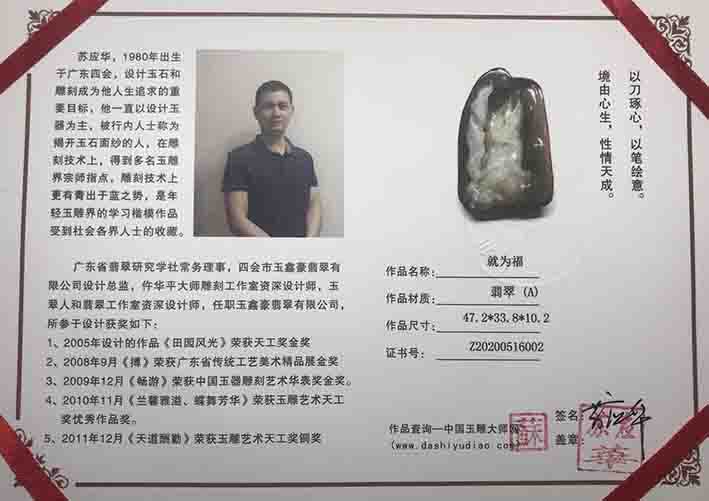 苏应华，1980年出生
于广东四会，设计玉石和
雕刻成为他人生追求的重
要目标，他一直以设计玉
器为主，被行内人士称为
揭开玉石面纱的人，在雕
刻技术上，得到多名玉雕
界宗师指点，雕刻技术上
更有青出于蓝之势，是年
轻玉雕界的学习楷模作品
受到社会各界人士的收藏。
广东省翡翠研究学社常务理事，四会市玉鑫豪翡翠有
限公司设计总监，仵华平大师雕刻工作室资深设计师，玉
翠人和翡翠工作室资深设计师，任职玉鑫豪翡翠有限公司，
所参于设计获奖如下：
1、2005年设计的作品《田园风光》荣获天工奖金奖
2、2008年9月《搏》荣获广东省传统工艺美术精品展金奖
3、2009年12月《畅游》荣获中国玉器雕刻艺术华表奖金奖。
4、2010年11月《兰馨雅溢、蝶舞芳华》荣获玉雕艺术天工
奖优秀作品奖。
5、2011年12月《天道酬勤》荣获玉雕艺术天工奖铜奖
以刀琢心，以笔绘意。
境由心生，性情天成。
作品名称： 就为福
作品材质： 翡翠（A）
作品尺寸： 47.2*33.8*10.2
证书号： Z20200516002
作品查询—中国玉雕大师网
(www.dashiyudiao.com)
签名： 苏应华
盖章：
蘇